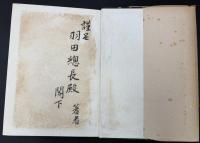 謹呈
羽田總長殿
閣下
著者